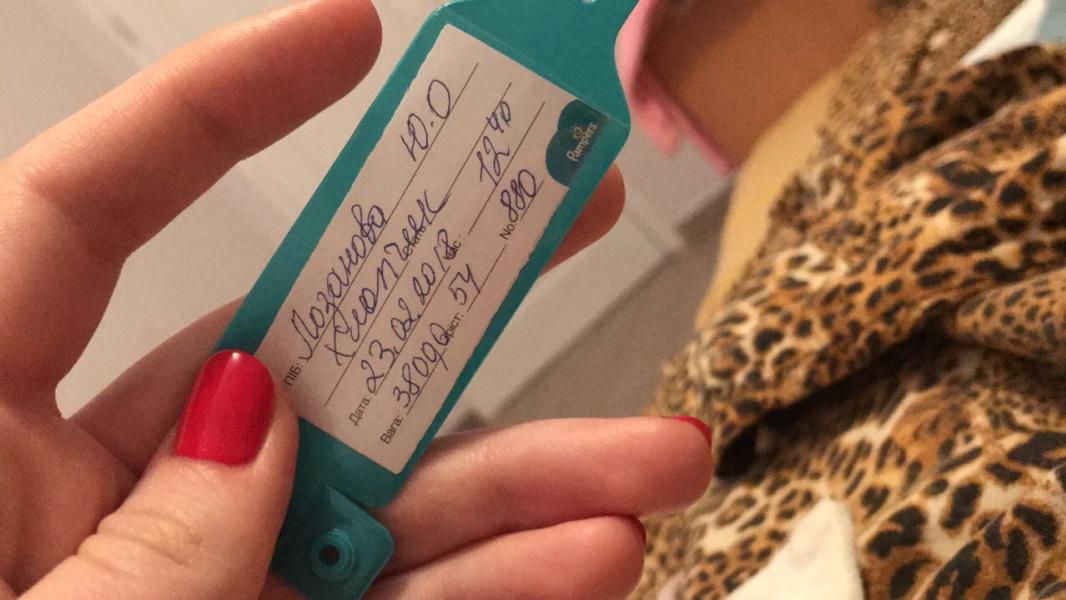 ПІБ: Лозанова Ю.О
Хлопчик
Дата: 23.02.2018 Час: 12 40
Вага: 3800 Зріст: 54 No 880
Pampers